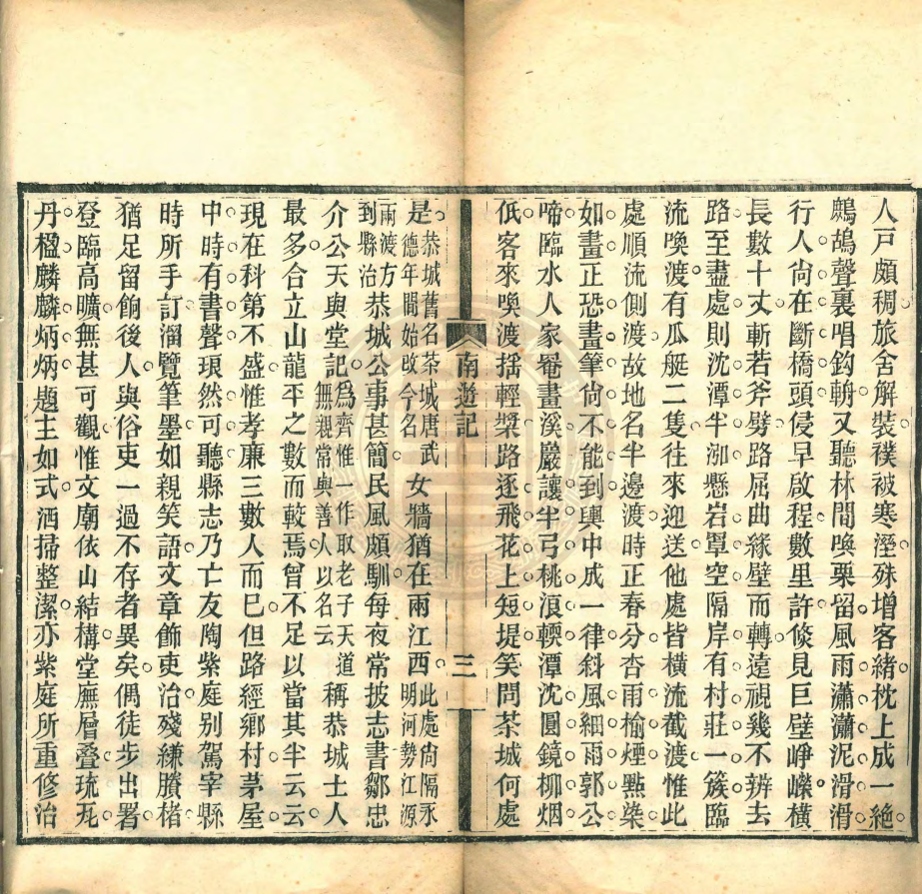 人戸頗稠旅舍解裝襆被寒溼殊增客緒枕上成一絶
鷓鴣聲裏唱鈎輈又聽林間喚栗留風雨瀟瀟泥滑滑
行人尙在斷橋頭侵早啟程數里許倐見巨壁崢嶸橫
長數十丈斬若斧劈路屈曲緣壁而轉遠視幾不辨去
路至盡處則沈潭半泖懸岩罩空隔岸有村莊一簇臨
流喚渡有瓜艇二隻往來迎送他處皆橫流截渡惟此
處順流側渡故地名半邊渡時正春分杏雨榆煙㸃染
如畫正恐畫筆尙不能到輿中成一律斜風細雨郭公
啼臨水人家罨畫溪巖讓半弓桃浪輭潭沈圓鏡柳烟
低客來喚渡搖輕槳路逐飛花上短堤笑問茶城何處
南遊記
三
是恭城舊名茶城唐武德年間始改今名女牆猶在兩江西此處尙隔永明河勢江源
兩渡方到縣治恭城公事甚簡民風頗馴每夜常披志書鄒忠
介公天輿堂記爲齊惟一作取老子天道無親常與善人以名云稱恭城士人
最多合立山龍平之數而較焉曾不足以當其半云云
現在科第不盛惟孝廉三數人而已但路經鄉村茅屋
中時有書聲琅然可聽縣志乃亡友陶紫庭别駕宰縣
時所手訂溜覽筆墨如親笑語文章飾吏治殘縑賸楮
猶足留餉後人與俗吏一過不存者異矣偶徒步出署
登臨高曠無甚可觀惟文廟依山結構堂廡層叠琉瓦
丹楹麟麟炳炳題主如式洒掃整潔亦紫庭所重修治